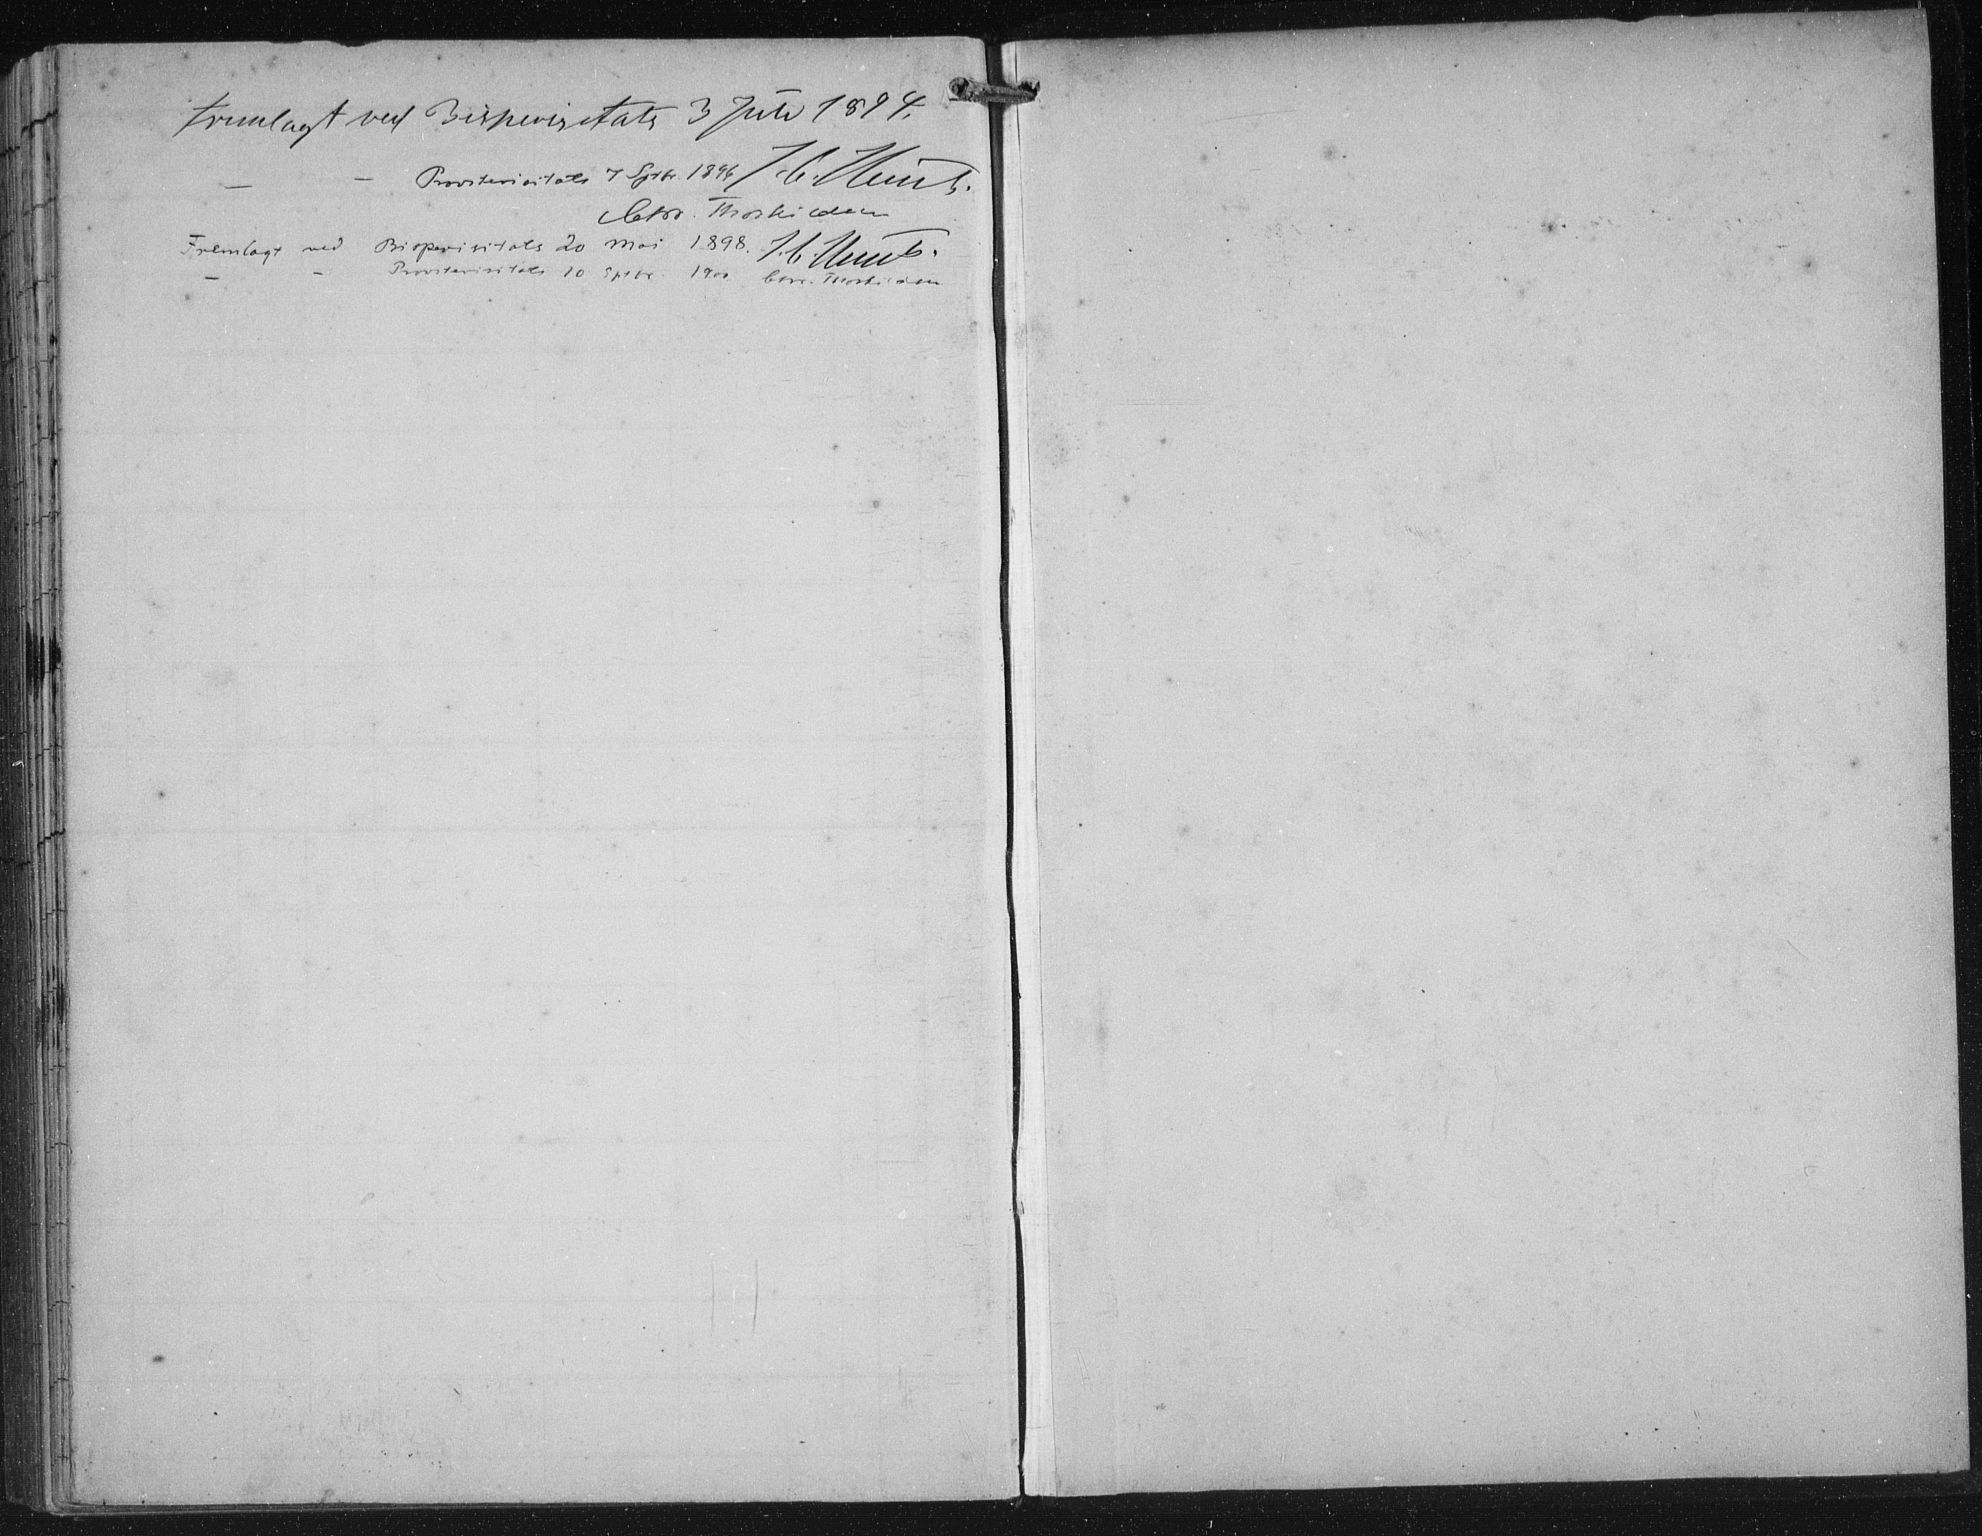 Fremlagt ved Bispevisitats 3 Juli 1894.
— — Provstevisitats 7 Septbr. 1896 J.C. Heuch.
Chr. Thorkildsen
Fremlagt ved Bispevisitats 20 Mai 1898. J.C. Heuch.
— — Provstevisitats 10 Septbr. 1900 Chr. Thorkildsen